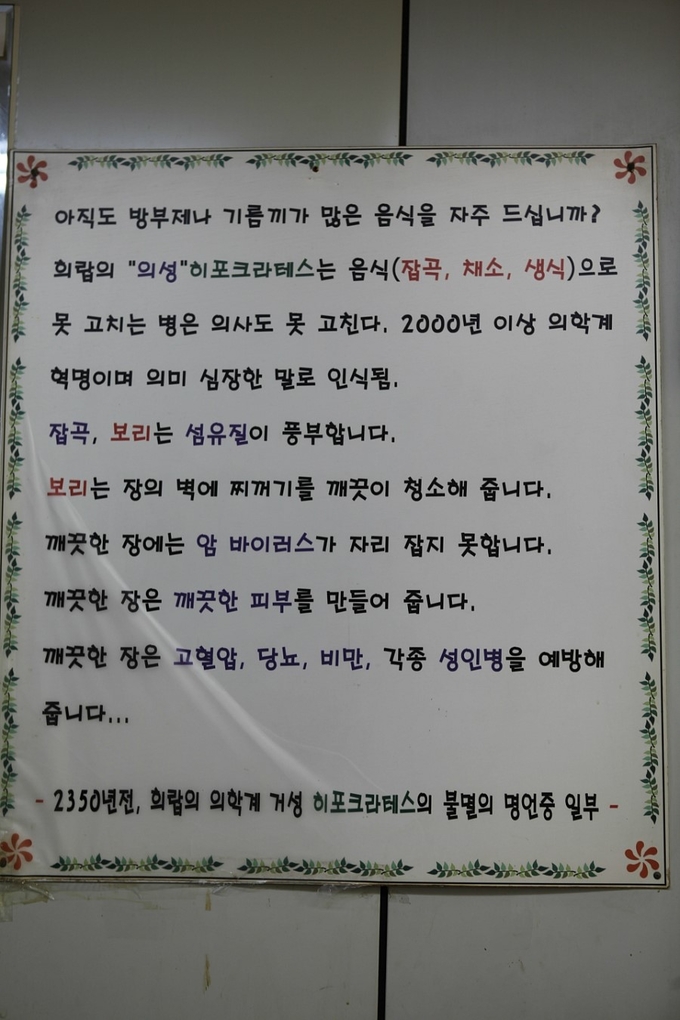 아직도 방부제나 기름끼가 많은 음식을 자주 드십니까?
희랍의 "의성"히포크라테스는 음식(잡곡, 채소, 생식)으로
못 고치는 병은 의사도 못 고친다. 2000년 이상 의학계
혁명이며 의미 심장한 말로 인식됨.
잡곡, 보리는 섬유질이 풍부합니다.
보리는 장의 벽에 찌꺼기를 깨끗이 청소해 줍니다.
깨끗한 장에는 암 바이러스가 자리 잡지 못합니다.
깨끗한 장은 깨끗한 피부를 만들어 줍니다.
깨끗한 장은 고혈압, 당뇨, 비만, 각종 성인병을 예방해
줍니다...
- 2350년전, 희랍의 의학계 거성 히포크라테스의 불멸의 명언중 일부 -